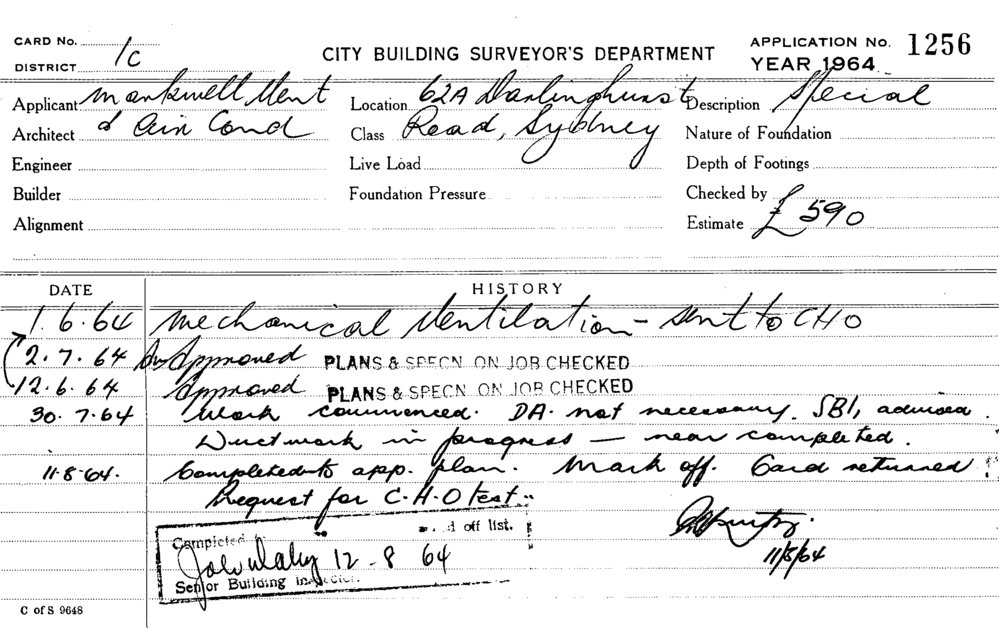 CARD No.
DISTRICT 1c
CITY BUILDING SURVEYOR'S DEPARTMENT
APPLICATION No. 1256
YEAR 1964
Applicant Markwell Vent
Architect & Air Cond
Engineer
Builder
Alignment
Location 62A Darlinghurst
Class Road, Sydney
Live Load
Foundation Pressure
Description Special
Nature of Foundation
Depth of Footings
Checked by
Estimate £590
DATE HISTORY
1.6.64 Mechanical Ventilation - sent to CHO
2.7.64 Approved PLANS & SPECN ON JOB CHECKED
12.6.64 Approved PLANS & SPECN ON JOB CHECKED
30.7.64 Work commenced. DA. not necessary. SBI, advised.
Ductwork in progress - near completed.
11.8.64. Completed to app. plan. Mark off. Card returned.
Request for C.H.O test.
Completed off list.
12-8 64
Senior Building Inspector.
11/8/64
C of S 9648